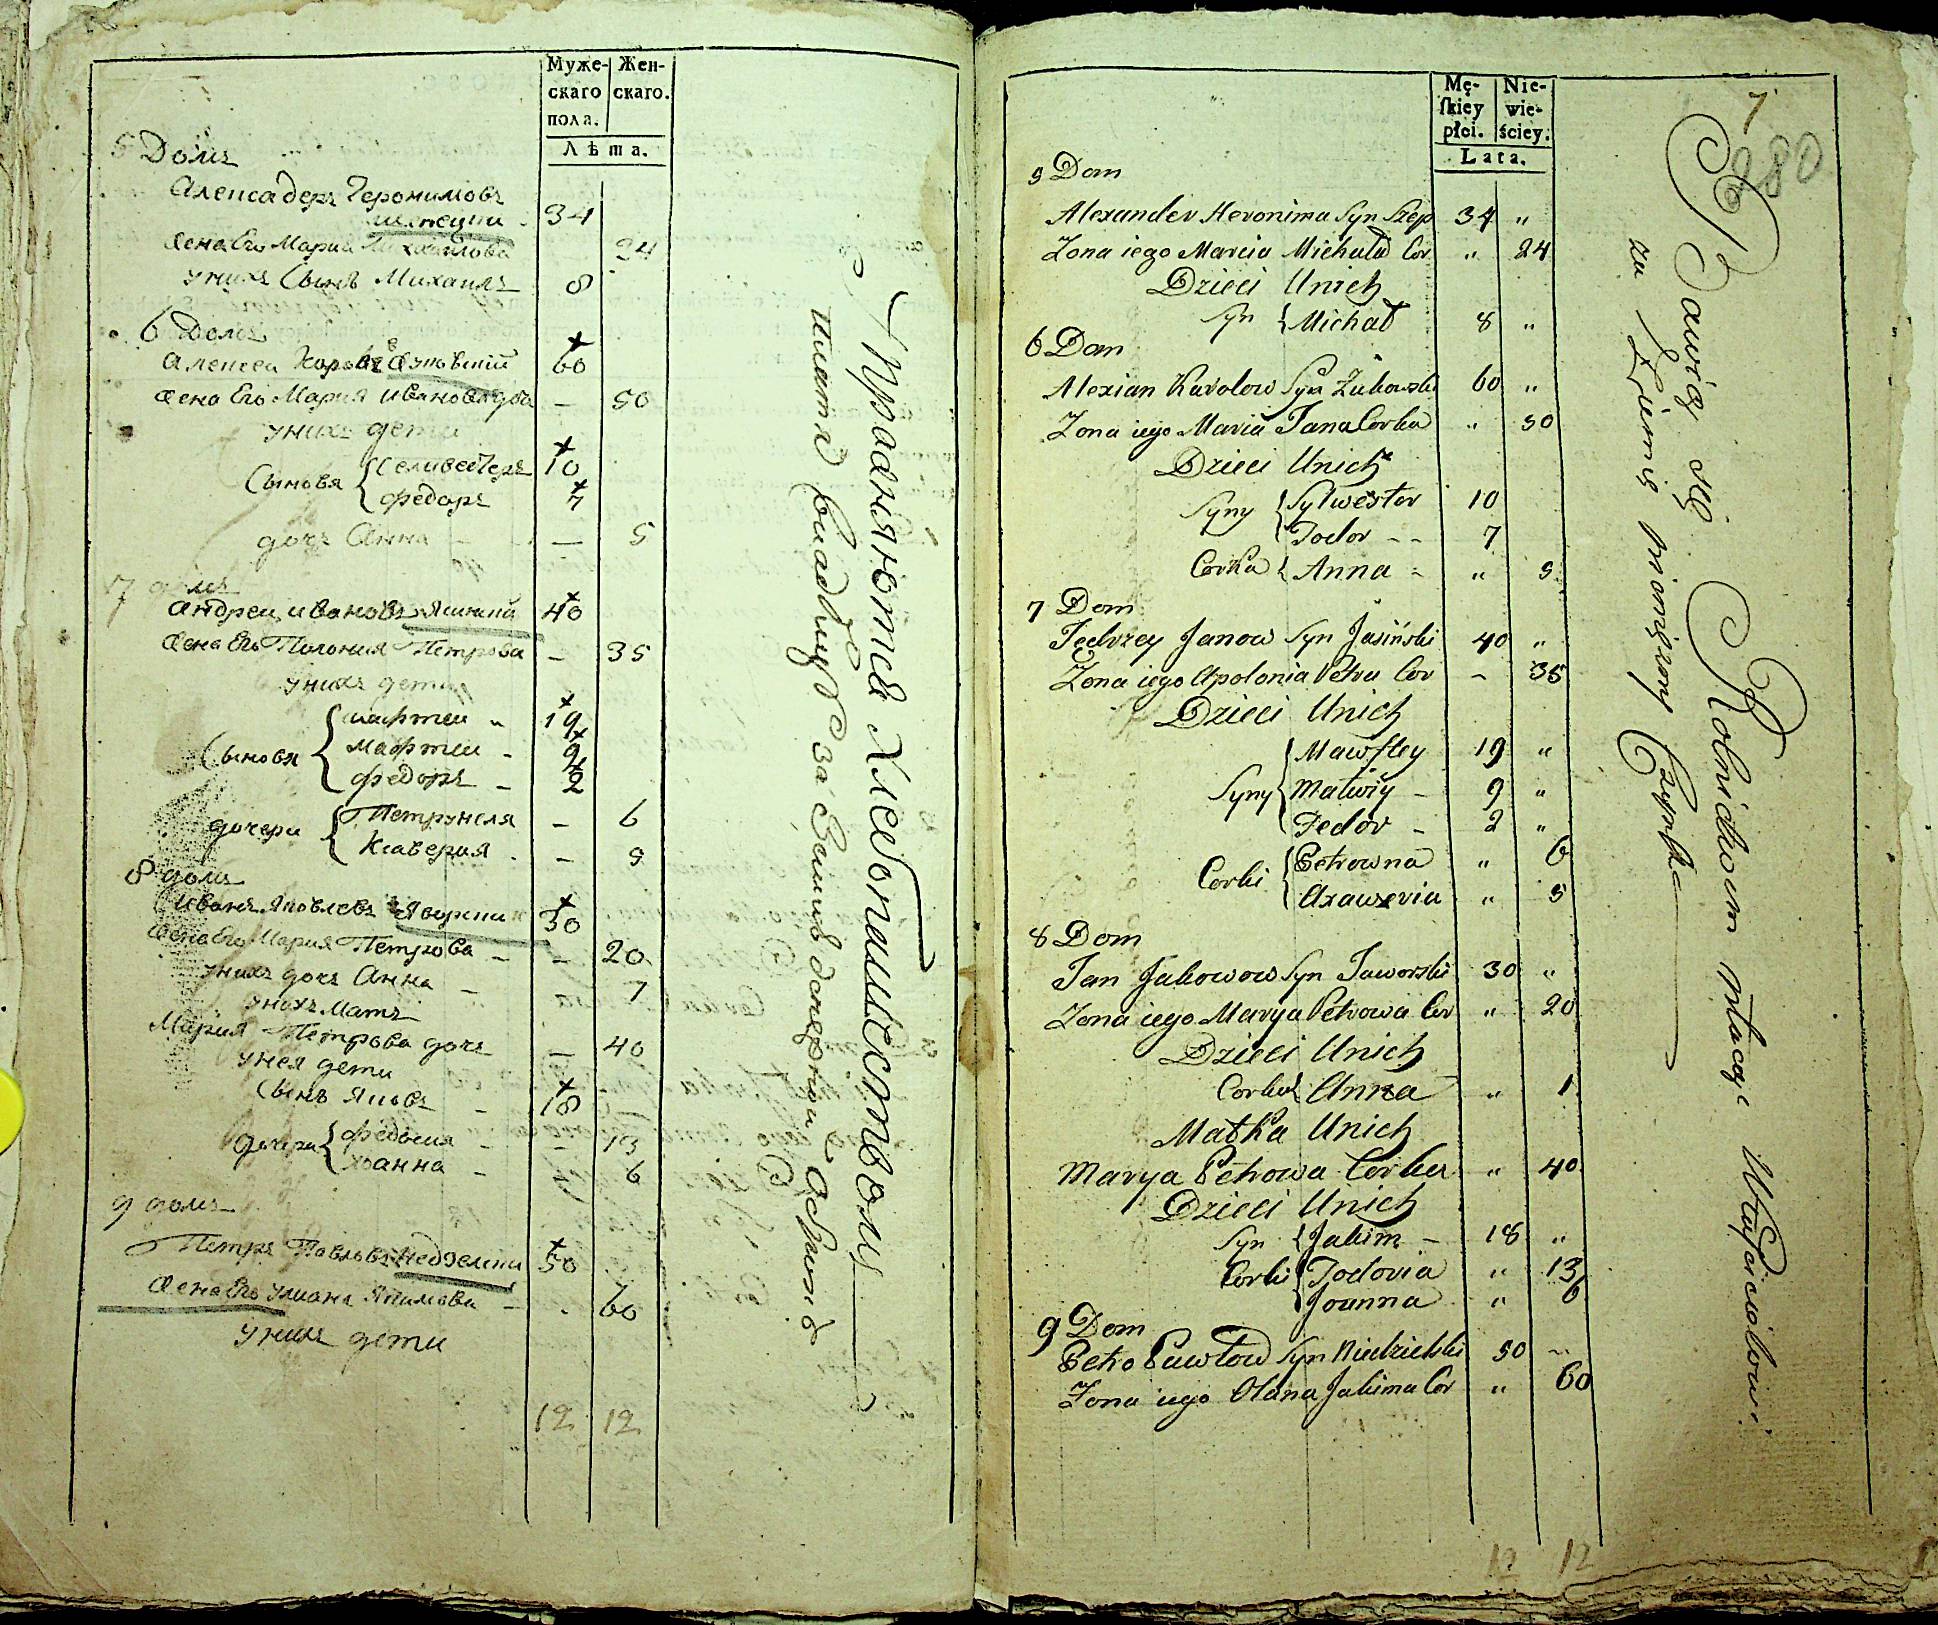 Муже-
скаго
пола.
Жен-
скаго.
Лѣта.
5 Домъ
Алексадеръ Геронимовъ
34
жена Его Мария Михайлова 24
у нихъ Сынъ Михаилъ 8
6 Домъ
Алексеи Карловъ Жуковский 60
жена Его Мария Иванова доч — 50
у нихъ дети
Сыновя { Селивестеръ 10
федоръ 7
дочъ Анна — — 5
7 домъ
Андреи Ивановъ Яшинский 40
жена Его Полония Петрова — 35
у нихъ дети
Сыновя { мафтеи 19
мафтеи 9
федоръ 2
дочери { Петрунеля — 6
Ксаверия — 5
8 домъ
Иванъ Яковлевъ Яворски 30
жена Его Мария Петрова — 20
у нихъ дочъ Анна — 1
у нихъ Матъ
Мария Петрова дочъ — 40
у нея дети
Сынъ Якывъ 18
дочери { федосия — 13
Иоанна — 6
9 домъ
Петръ Павловъ Недзелски 50
жена Его Улиана Якимова — 60
у нихъ дети
12 12
Упражняются Хлебопашеством
платя владелцу за землю денежной оброкъ
Mę-
skiey
płci.
Nie-
wie-
ściey.
Lata.
7
280
5 Dom
Alexander Heronima Syn Szep 34 "
Zona iego Marcia Michala Cor " 24
Dzieci Unich
Syn { Michał 8 "
6 Dom
Alexian Karolow Syn Żukowski 60 "
Zona iego Maria Jana Corka " 50
Dzieci Unich
Syny { Sylwester 10
Todor - - 7
Corka { Anna - " 5
7 Dom
Jedrzey Janow Syn Jasiński 40 "
Zona iego Apolonia Petra Cor - 35
Dzieci Unich
Syny { Mawftey 19 "
Matwiy - 9 "
Fedor - 2 "
Corki { Petrowna " 6
Axaweria " 5
8 Dom
Jan Jakowow Syn Jaworski 30 "
Zona iego Marya Petrowa Cor " 20
Dzieci Unich
Corka { Anna " 1
Matka Unich
Marya Petrowa Corka " 40
Dzieci Unich
Syn { Jakim - 18 "
Corki { Todosia " 13
Joanna " 6
9 Dom
Petro Pawłow Syn Niedzielski 50 "
Zona iego Olana Jakima Cor " 60
12 12
Bawią się Rolnictwem płacąc Właścicielowi
za Ziemię pieniężny Czynsz